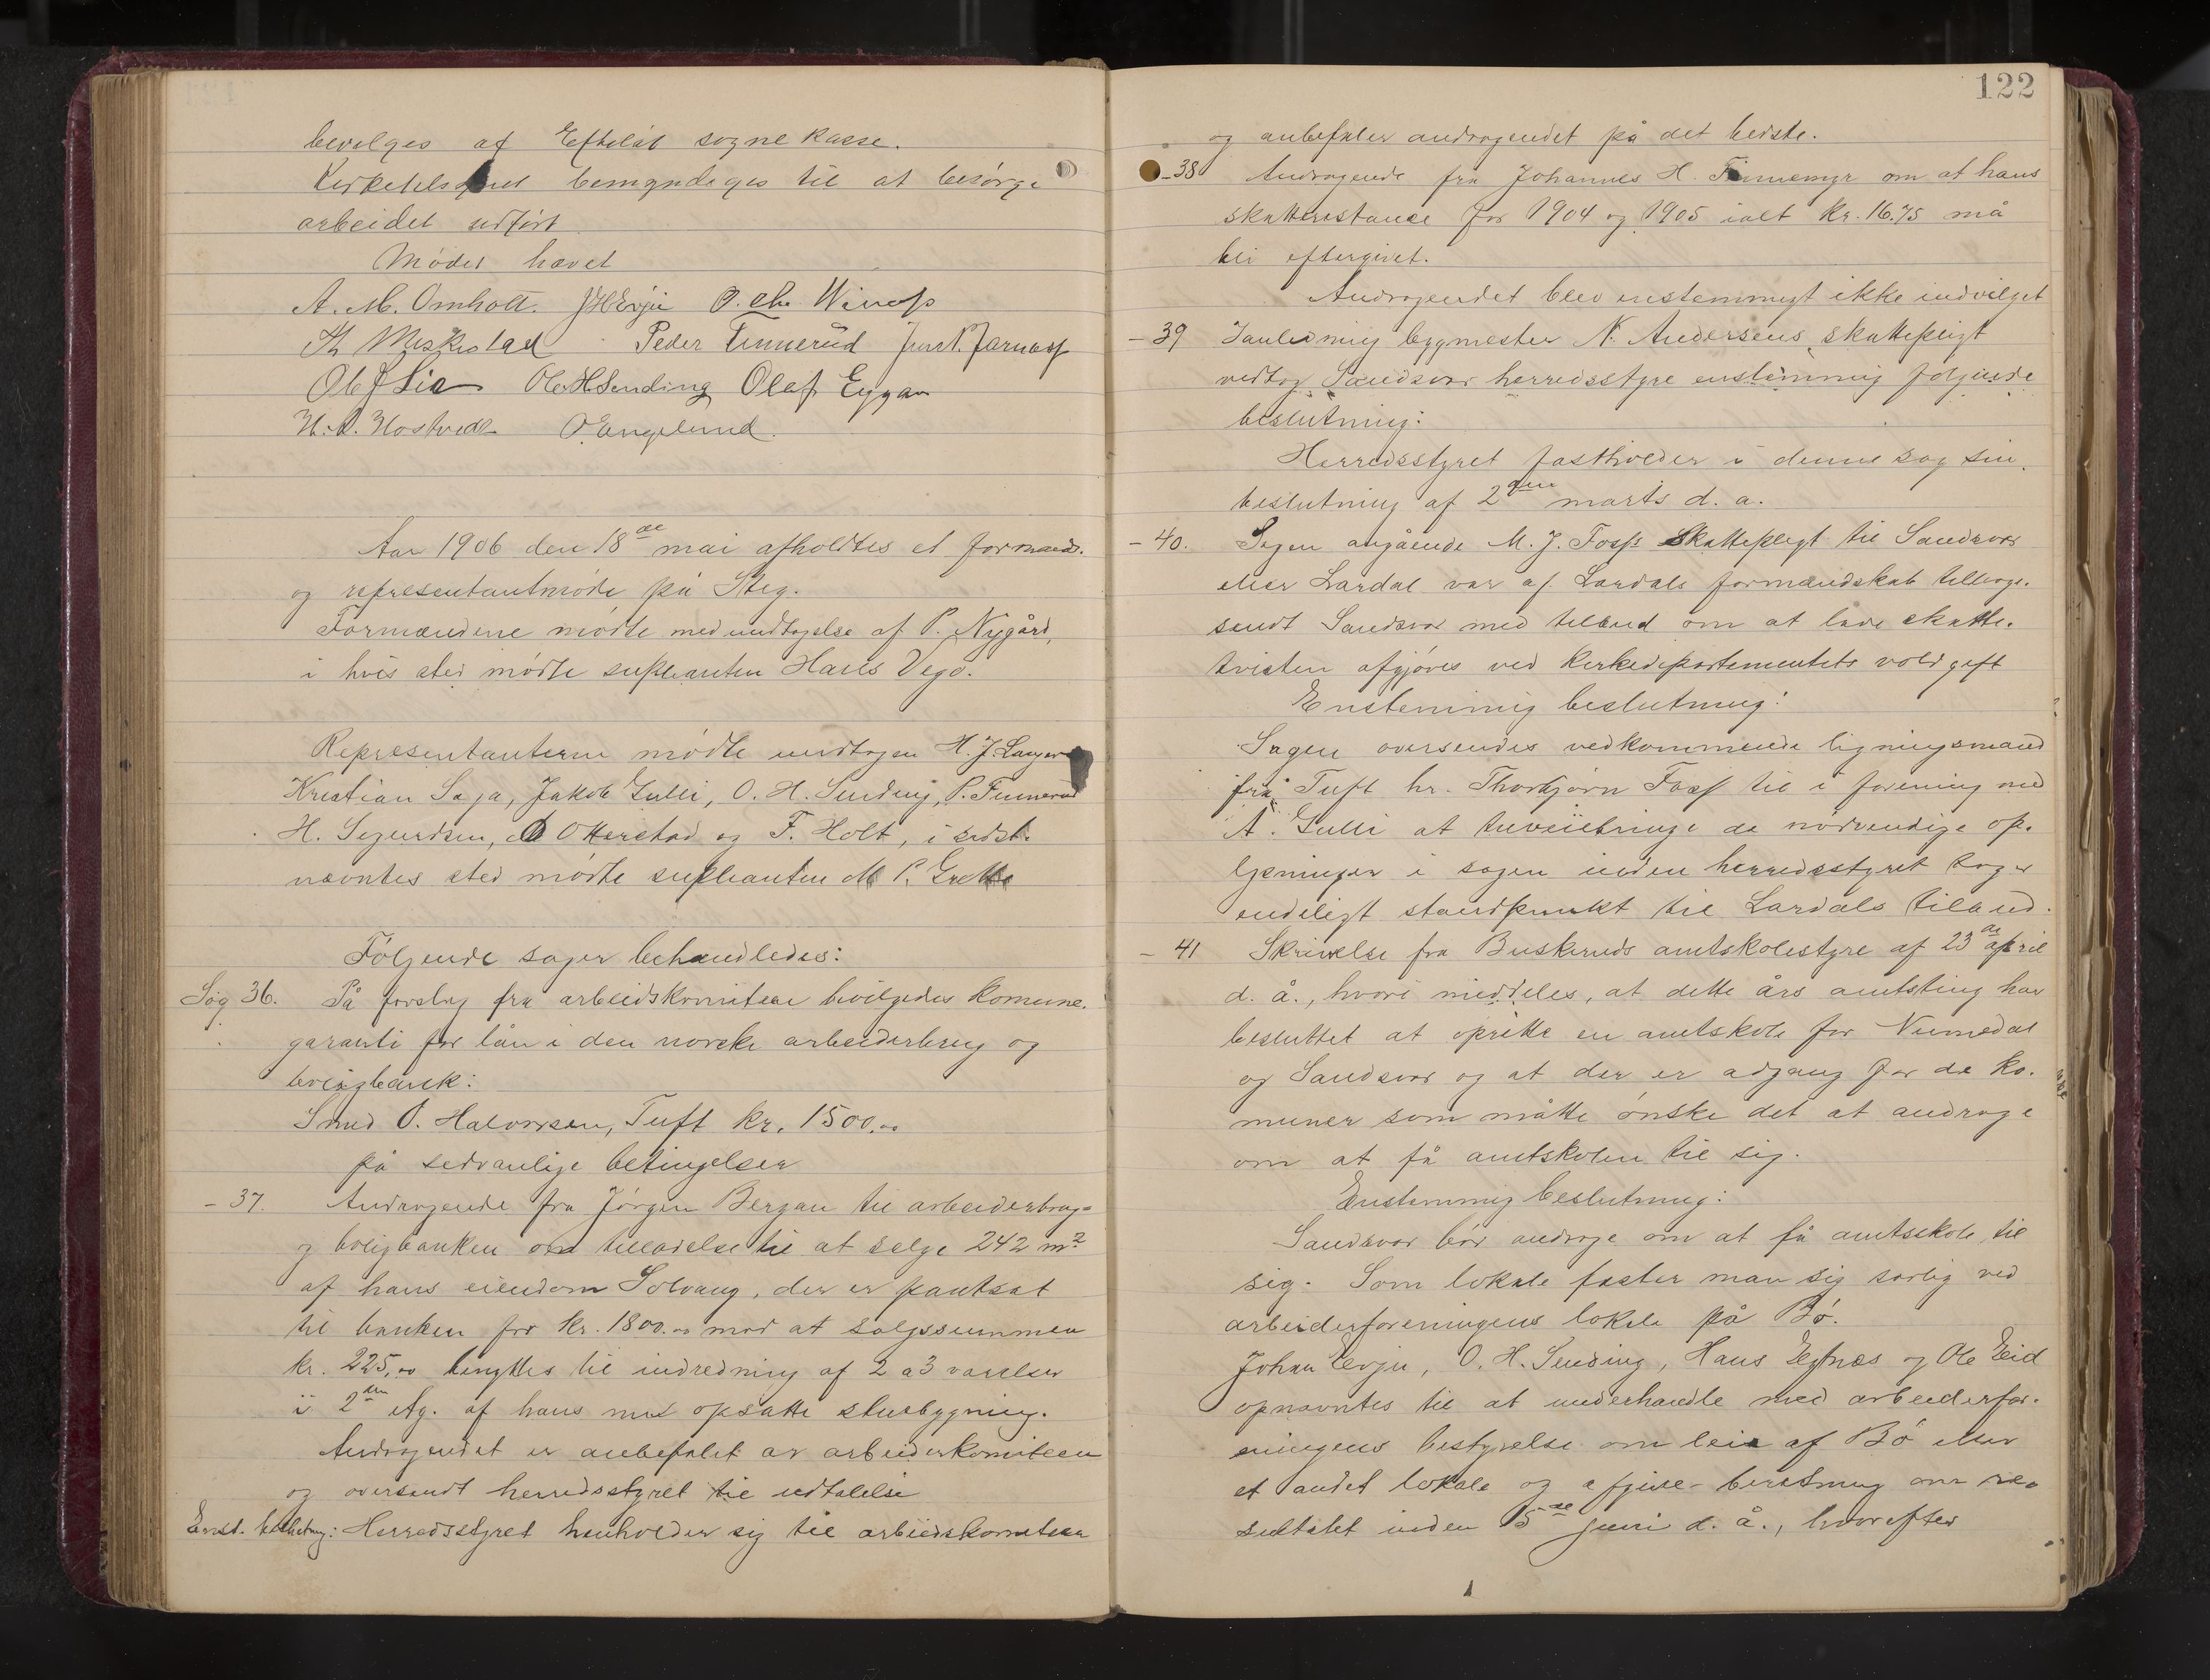 bevilges af Efteløt sognekasse.
Kirketilsynet bemyndiges til at besørge
arbeidet udført
Mødet hævet
A. M. Omholt. J H Evju O. Chr. Winess
Th Meskestad Peder Finnerud Just. Jarnæss
Ole J Lia Ole H Sending Olaf Eggar
H. O. Hostvedt O Engelund.
Aar 1906 den 18de mai afholdtes et formands-
og representantmøde på Steg.
Formændene mødte med undtagelse af P. Nygård,
i hvis sted mødte supleanten Hans Vego.
Representanterne mødte undtagen H. J. Langer
Kristian Saja, Jakob Gulli, O. H. Sending, P. Finnerud
H. Segurdsen, O Otterstad og F. Holt, i sidst-
nævntes sted mødte supleanten M P. Grette
Følgende sager behandledes:
Sag 36. På forslag fra arbeidskomiteen bevilgedes komune-
garanti for lån i den norske arbeiderbrug og
boligbank:
Smed O. Halvorsen, Tuft kr. 1500.00
på sedvanlige betingelser
- 37. Andragende fra Jørgen Bergan til arbeiderbrug-
og boligbanken om tilladelse til at selge 242 m2
af hans eiendom Solvang, der er pantsat
til banken for kr. 1800.00 mod at salgssummen
kr. 225,00 benyttes til indredning af 2 a 3 værelser
i 2den etg. af hans nu opsatte stuebygning.
Andragendet er anbefalet av arbeiderkomiteen
og oversendt herredsstyret til udtalelse
Enst. beslutning: Herredsstyret henholder sig til arbeidskomiteen
122
og anbefaler andragendet på det bedste.
- 38 Andragende fra Johannes H. Finnemyr om at hans
skatterestance for 1904 og 1905 ialt kr. 16.75 må
bli eftergivet.
Andragendet blev enstemmigt ikke indvilget
- 39 I anledning bygmester N. Andersens skattepligt
vedtog Sandsvær herredsstyre enstemmig følgende
beslutning:
Herredsstyret fastholder i denne sag sin
beslutning af 2den marts d. a.
- 40. Sagen angående M. J. Foss skattepligt til Sandsvær
eller Lardal var af Lardals formandskab tilbage-
sendt Sandsvær med tilbud om at lade skatte-
tvisten afgjøres ved kirkedepartementets voldgift
Enstemmig beslutning:
Sagen oversendes vedkommende ligningsmand
fra Tuft hr. Thorbjørn Foss til i forening med
A. Gulli at tilveiebringe de nødvendige op-
lysninger i sagen inden herredsstyret tager
endeligt standpunkt til Lardals tilbud.
- 41 Skrivelse fra Buskeruds amtskolestyre af 23de april
d. å., hvori meddeles, at dette års amtsting har
besluttet at oprette en amtskole for Numedal
og Sandsvær og at der er adgang for de ko-
muner som måtte ønske det at andrage
om at få amtskolen til sig.
Enstemmig beslutning:
Sandsvær bør andrage om at få amtsskole til
sig. Som lokale fæster man sig særlig ved
arbeiderforeningens lokale på Bø.
Johan Evju, O. H. Sending, Hans Tegtnæs og Ole Eid
opnævntes til at underhandle med arbeiderfor-
eningens bestyrelse om leie af Bø eller
et andet lokale og afgive beretning om re-
sultatet inden 15de juni d. å., hvorefter